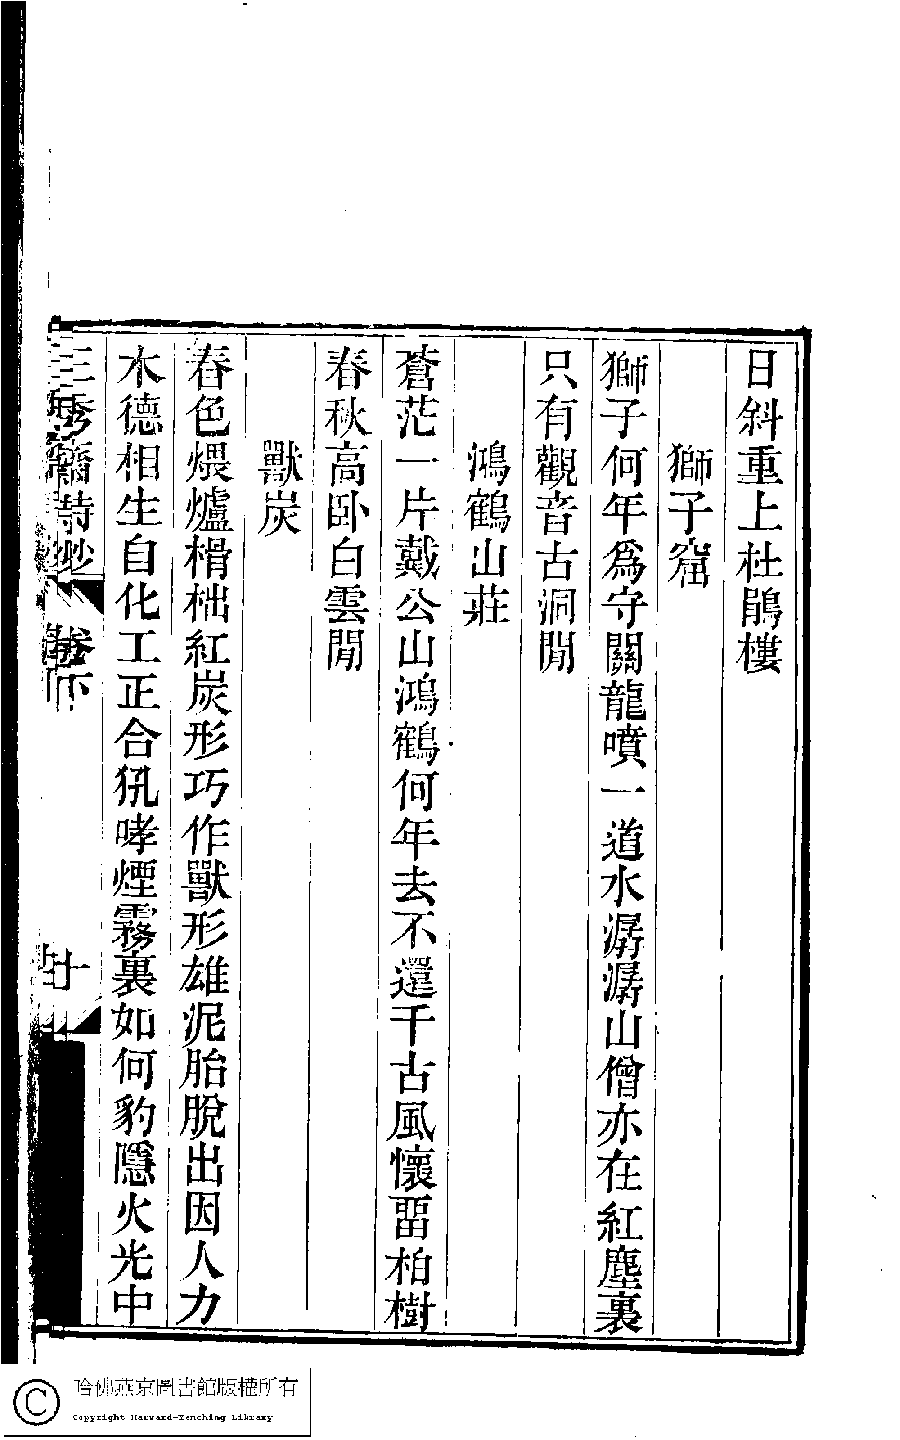 日斜重上杜鵑樓
獅子窟
獅子何年為守關龍噴一道水潺潺山僧亦在紅塵裏
只有觀音古洞閒
鴻鶴山莊
蒼茫一片戴公山鴻鶴何年去不還千古風懷畱柏樹
春秋高卧白雲閒
獸炭
春色煨爐榾柮紅炭形巧作獸形雄泥胎脫出因人力
木德相生自化工正合狐哮煙霧裏如何豹隱火光中
三秀齋詩鈔
卷下
十
哈佛燕京圖書館版權所有
Copyright Harvard-Yenching Library